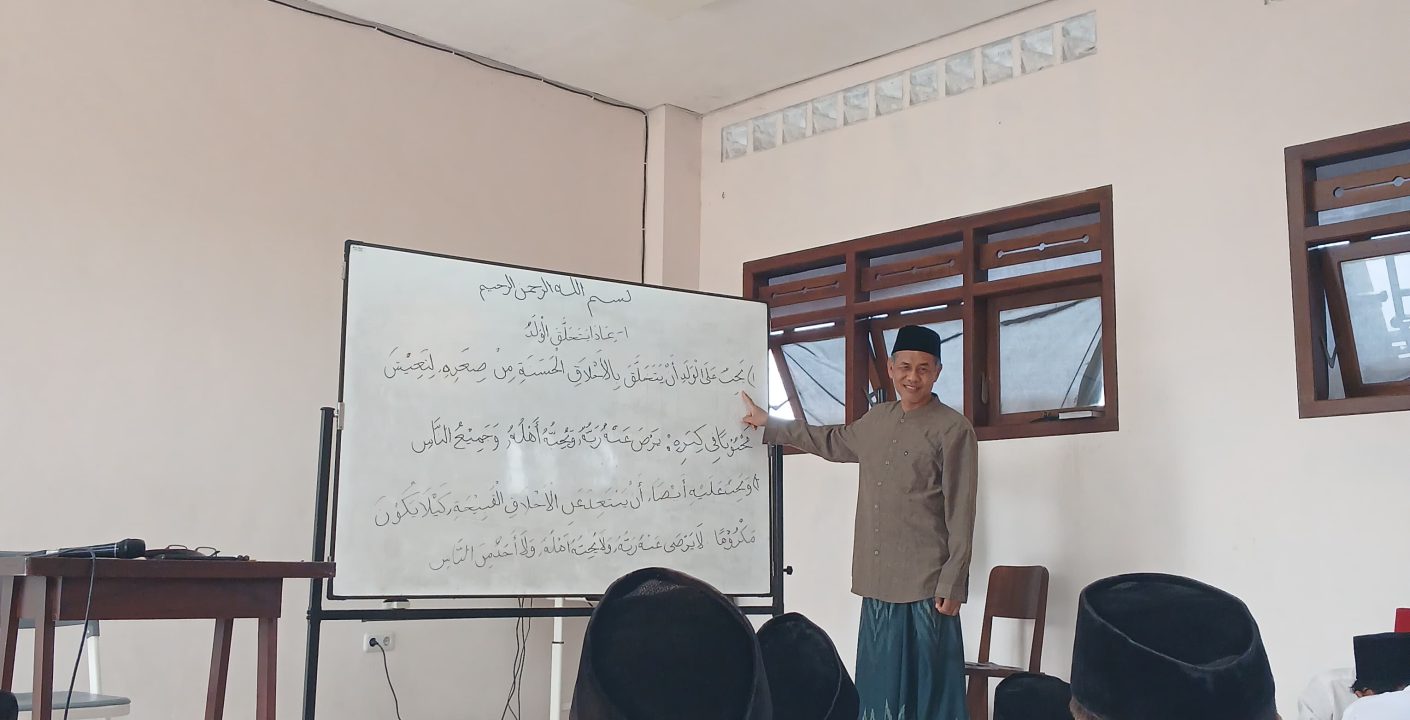 بسم الله الرحمن الرحيم
١- بماذا يتخلق الولد
١) يجب على الولد أن يتخلق بالأخلاق الحسنة من صغره، ليعيش
محبوبا في كبره: يرض عنه ربه، ويحبه أهله، وجميع الناس
٢) ويجب عليه أيضا، أن يبتعد عن الأخلاق القبيحة، كيلا يكون
مكروها لا يرضى عنه ربه، ولا يحبه أهله، ولا أحد من الناس